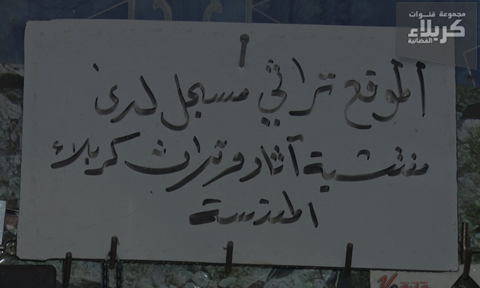 مجموعة قنوات
كربلاء
الفضائية
الموقع تراثي مسجل لدى
منتشية آثار وتراث كربلاء
المقدسة